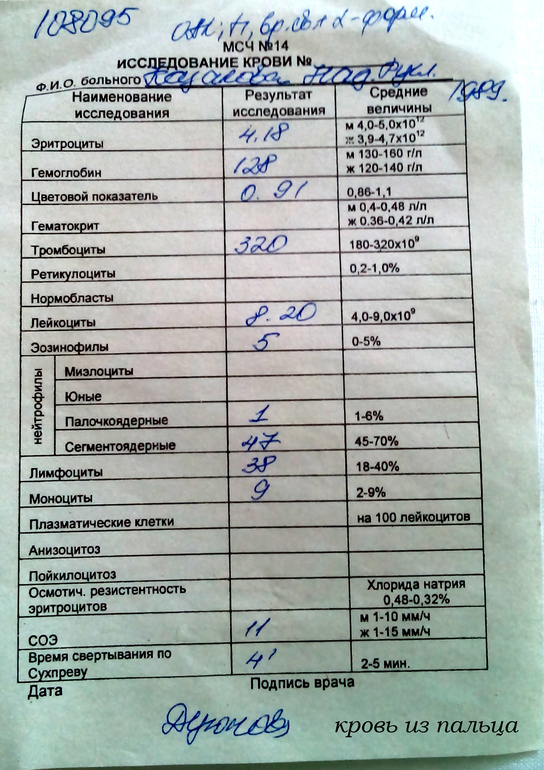 108095
МСЧ №14
ИССЛЕДОВАНИЕ КРОВИ №
Ф.И.О. больного
1989.
Наименование исследования Результат исследования Средние величины
Эритроциты 4,18 м 4,0-5,0х10¹² ж 3,9-4,7х10¹²
Гемоглобин 128 м 130-160 г/л ж 120-140 г/л
Цветовой показатель 0.91 0,86-1,1
Гематокрит м 0,4-0,48 л/л ж 0.36-0,42 л/л
Тромбоциты 320 180-320х10⁹
Ретикулоциты 0,2-1,0%
Нормобласты
Лейкоциты 8.20 4,0-9,0х10⁹
Эозинофилы 5 0-5%
нейтрофилы
Миэлоциты
Юные
Палочкоядерные 1 1-6%
Сегментоядерные 47 45-70%
Лимфоциты 38 18-40%
Моноциты 9 2-9%
Плазматические клетки на 100 лейкоцитов
Анизоцитоз
Пойкилоцитоз
Осмотич. резистентность эритроцитов Хлорида натрия 0,48-0,32%
СОЭ 11 м 1-10 мм/ч ж 1-15 мм/ч
Время свертывания по Сухпреву 4' 2-5 мин.
Дата Подпись врача
кровь из пальца